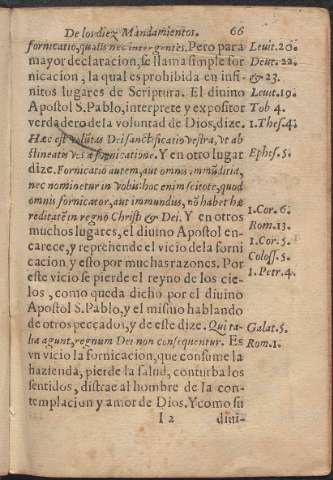 De los diez Mandamientos. 66
fornicatio, qualis nec inter gentes. Pero para Leuit. 20.
mayor declaracion, se llama simple for Deut. 22.
nicacion, la qual es prohibida en infi- & 23.
nitos lugares de Scriptura. El diuino Leuit. 19.
Apostol S. Pablo, interprete y expositor Tob 4.
verdadero de la voluntad de Dios, dize. 1. Thes. 4.
Hæc est volũtas Dei sanctificatio vestra, vt ab
stineatis vos à fornicatione. Y en otro lugar Ephes. 5.
dize. Fornicatio autem, aut omnis immũditia,
nec nominetur in vobis: hoc enim scitote, quod
omnis fornicator, aut immundus, nõ habet hæ
reditatẽ in regno Christi & Dei. Y en otros 1. Cor. 6.
muchos lugares, el diuino Apostol en- Rom. 13.
carece, y reprehende el vicio de la forni 1. Cor. 5.
cacion y esto por muchas razones. Por Coloss. 5.
este vicio se pierde el reyno de los cie- 1. Petr. 4.
los, como queda dicho por el diuino
Apostol S. Pablo, y el mismo hablando
de otros peccados, y de este dize. Qui ta- Galat. 5.
lia agunt, regnum Dei non consequentur. Es Rom. 1.
vn vicio la fornicacion, que consume la
hazienda, pierde la salud, conturba los
sentidos, distrae al hombre de la con-
templacion y amor de Dios. Y como su
I 2 diui-